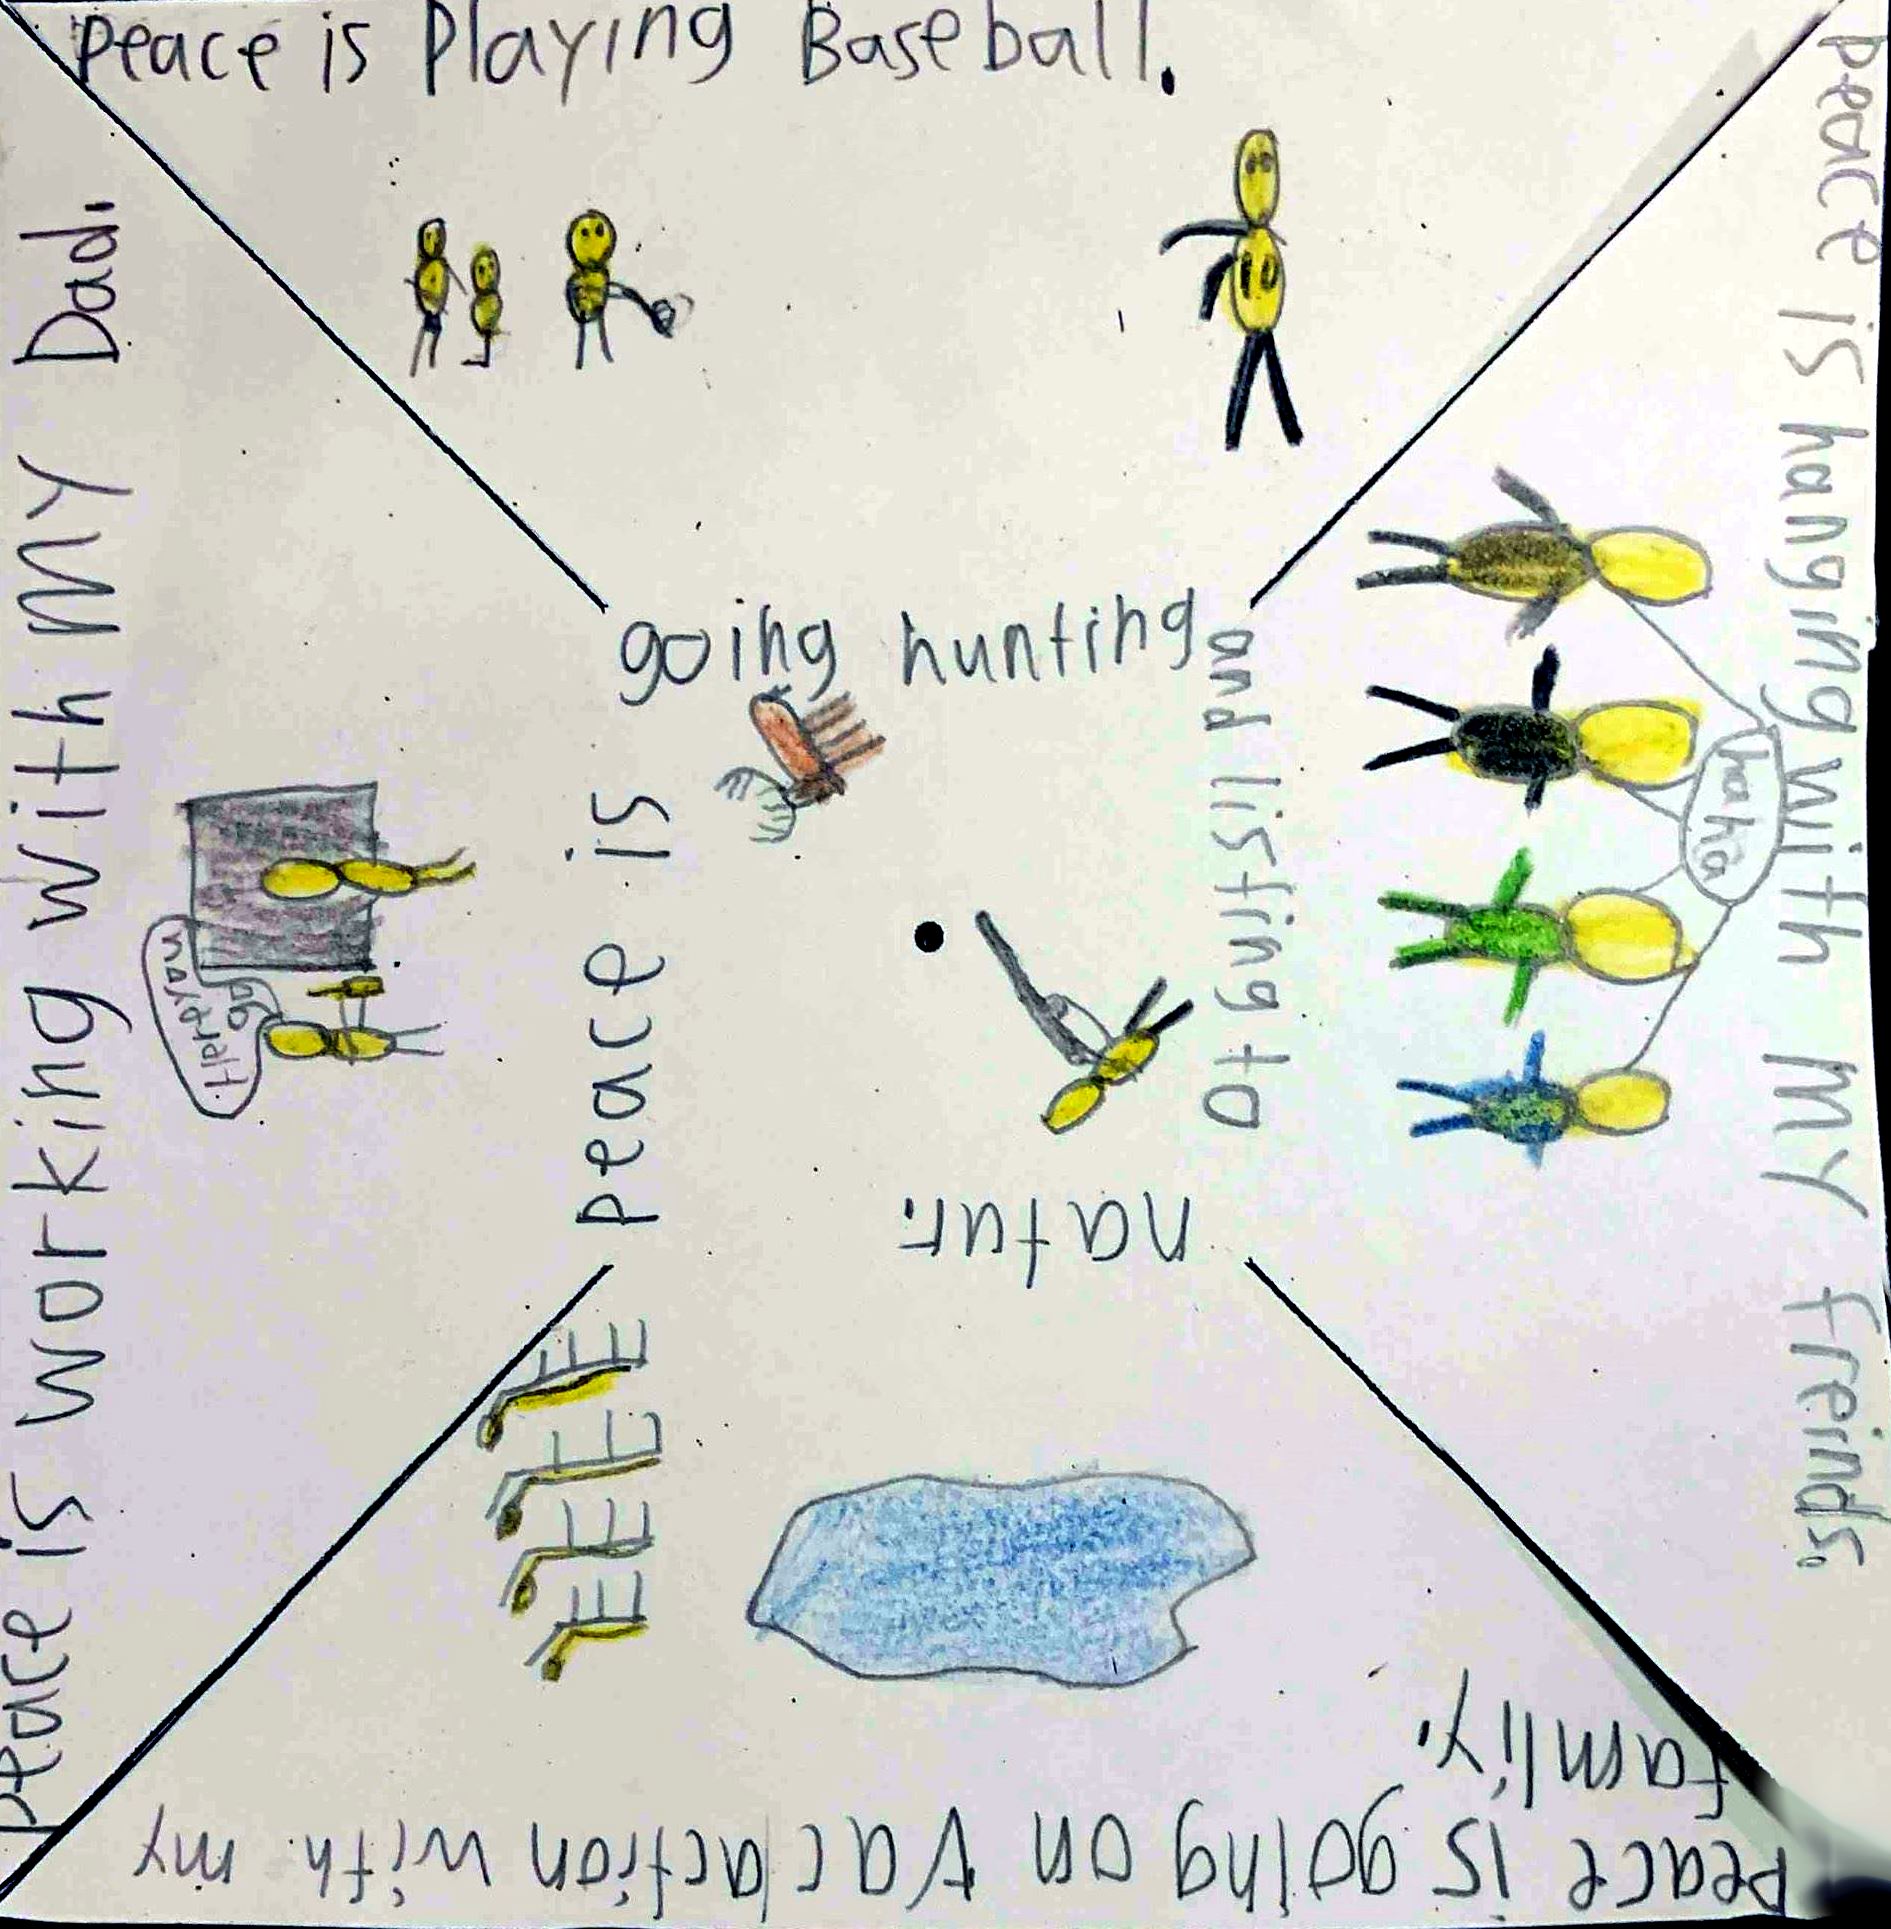 Peace is Playing Baseball.
10
peace is hanging with my freinds.
haha
peace is going on vaclaction with my
famliy.
peace is working with my Dad.
peace is
going hunting
and listring to
natur.